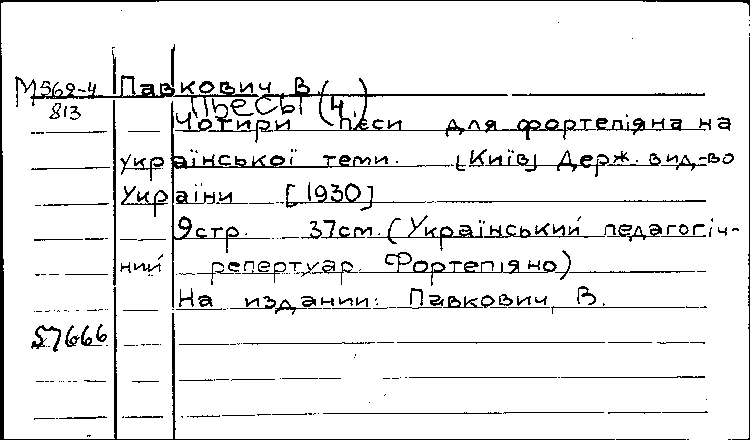 М562-4 Павкович, В.
813 Пьесы (4)
Чотири п'єси для фортепіяна на
української теми. [Київ] Держ. вид-во
України [1930]
9стр. 37см. (Український педагогіч-
ний репертуар. Фортепіяно)
На издании: Павкович, В.
57666